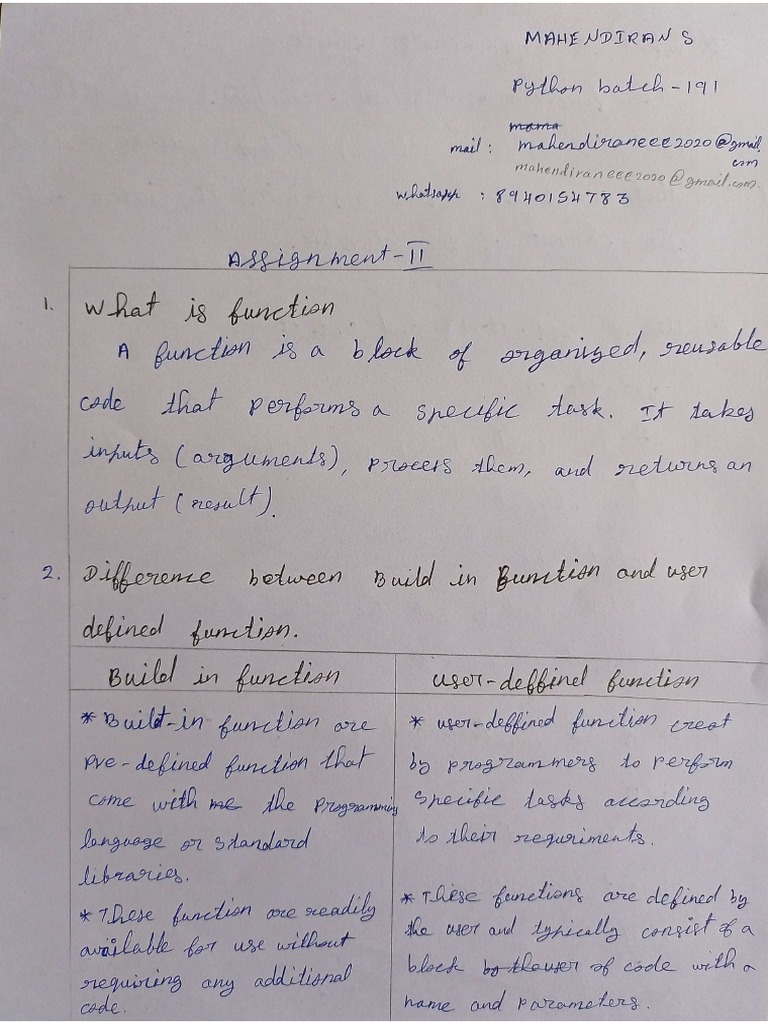 MAHENDIRAN S
Python batch - 191
mama
mail : mahendiraneee2020@gmail.
com
mahendiraneee2020@gmail.com.
whatsapp : 8940154783
Assignment - II
1. What is function
A function is a block of organized, reusable
code that performs a specific task. It takes
inputs (arguments), process them, and returns an
output (result).
2. Difference between Build in Function and user
defined function.
Build in function
* Built-in function are
pre-defined function that
come with me the programming
language or standard
libraries.
* These function are readily
available for use without
requiring any additional
code.
user-deffined function
* user-deffined function creat
by programmers to perform
specific tasks according
to their requriments.
* These functions are defined by
the user and typically consist of a
block by the user of code with a
name and parameters.